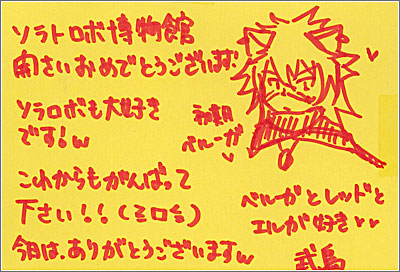 ソラトロボ博物館
開さいおめでとうございます!
ソラロボも大好き
です!w
初期
ベルーガ
これからもがんばって
下さい!!(ミロミ)
ベルガとレッドと
エルが好き
今日は、ありがとうございますw
武蔵